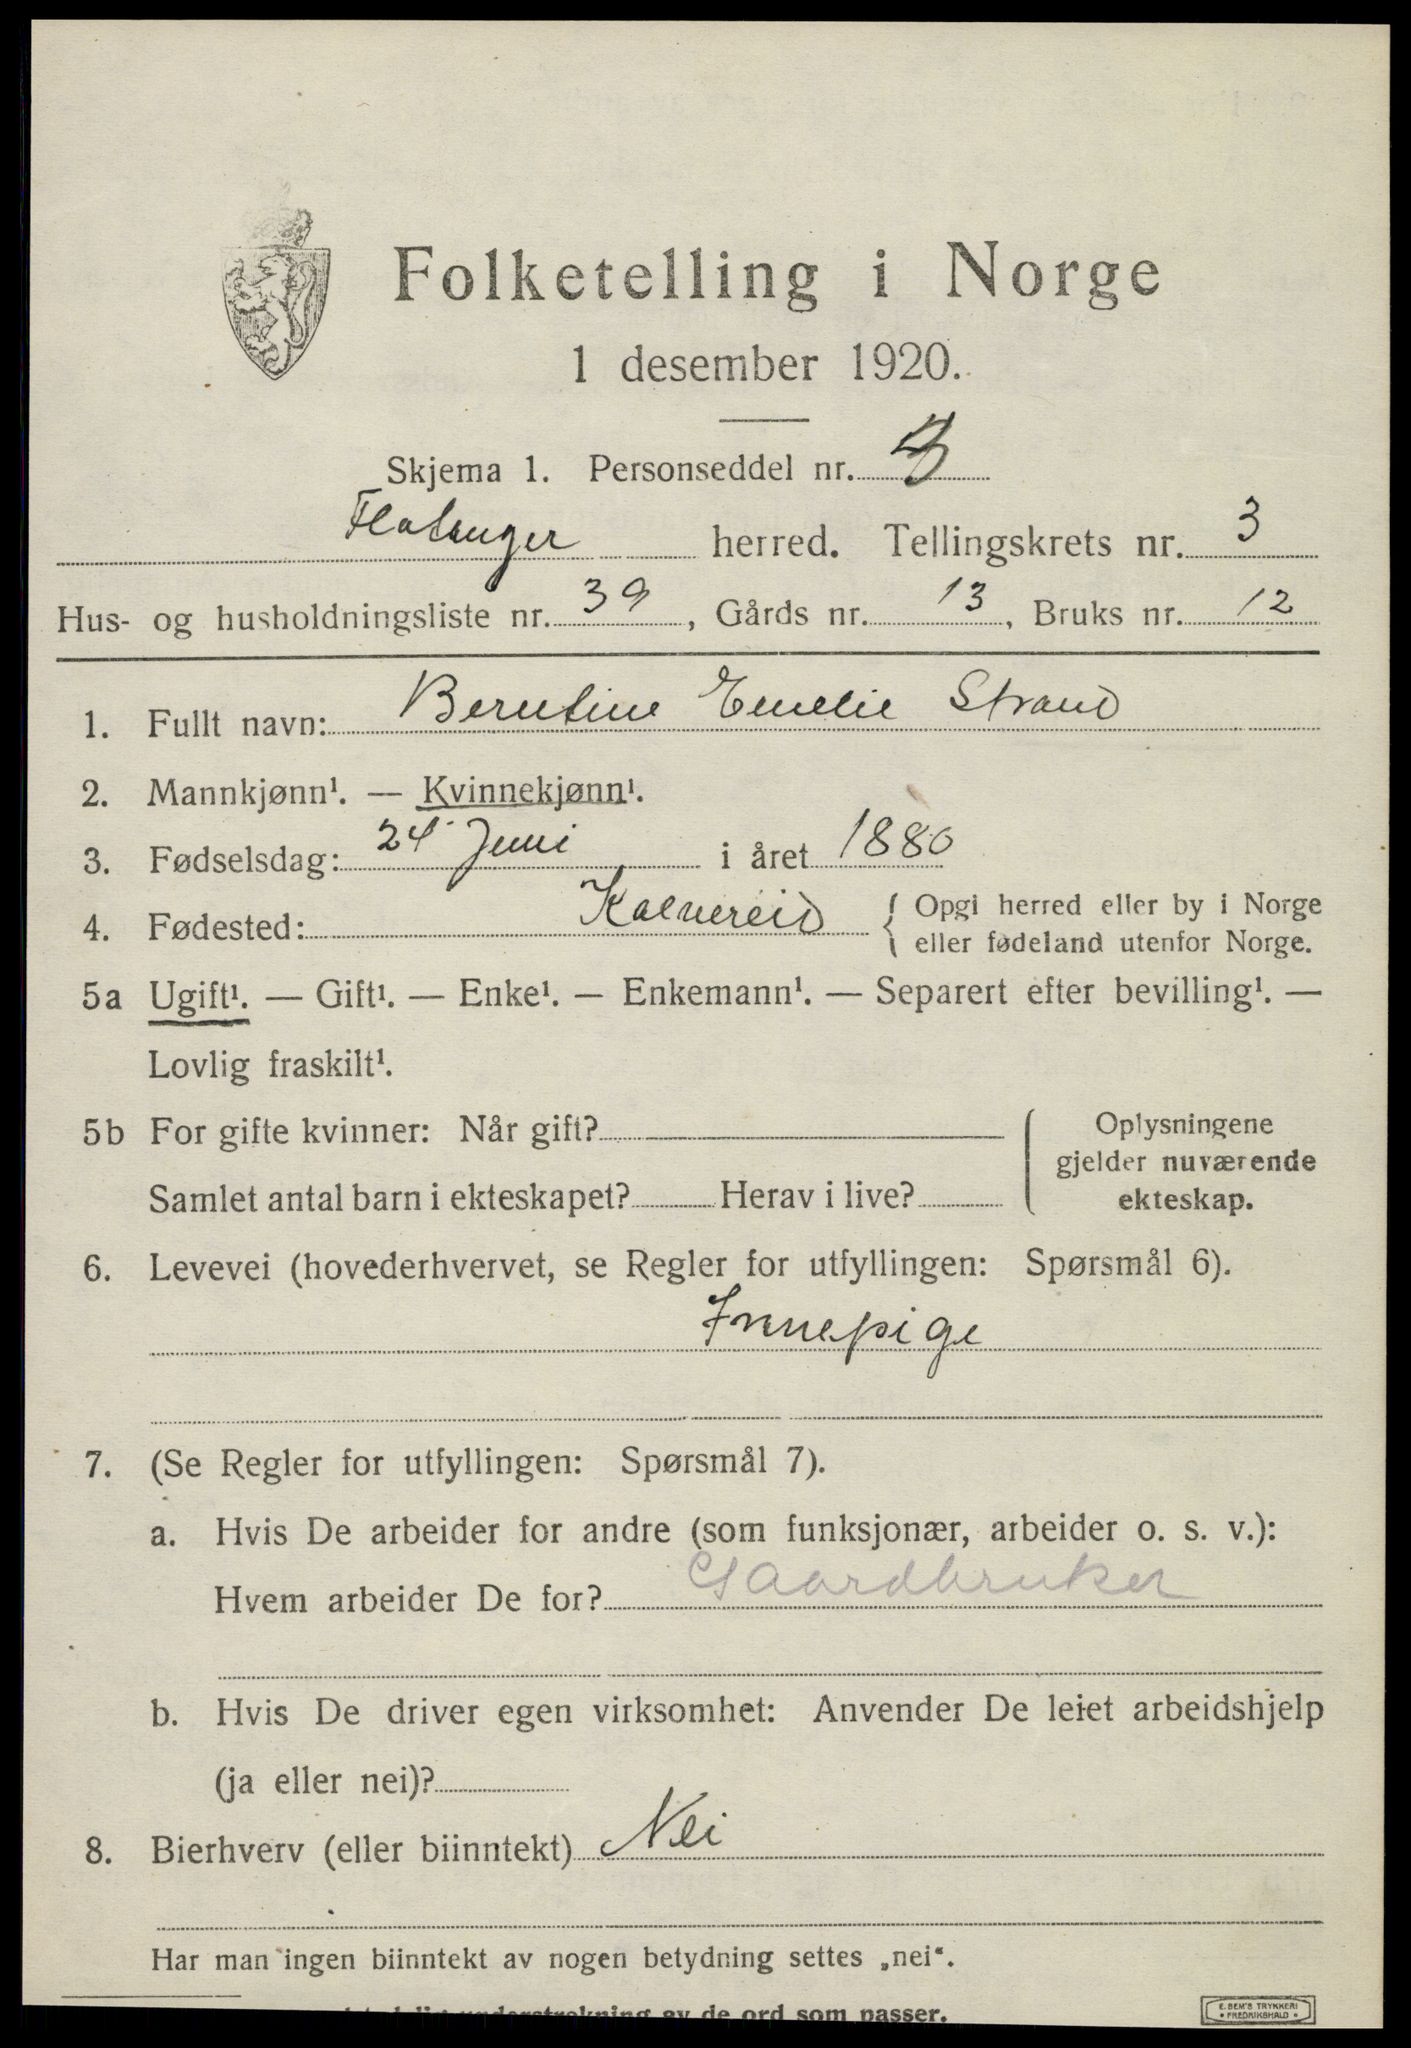 Folketelling i Norge
1 desember 1920.
Skjema 1. Personseddel nr.
Flatanger herred. Tellingskrets nr. 3
Hus- og husholdningsliste nr. 39, Gårds nr. 13, Bruks nr. 12
1. Fullt navn: Berntine Emelie Strand
2. Mannkjønn¹. — Kvinnekjønn¹.
3. Fødselsdag: 24 Juni i året 1880
4. Fødested: Kalvereid { Opgi herred eller by i Norge
eller fødeland utenfor Norge.
5a Ugift¹. — Gift¹. — Enke¹. — Enkemann¹. — Separert efter bevilling¹. —
Lovlig fraskilt¹.
5b For gifte kvinner: Når gift?
Samlet antal barn i ekteskapet? Herav i live?
Oplysningene
gjelder nuværende
ekteskap.
6. Levevei (hovederhvervet, se Regler for utfyllingen: Spørsmål 6).
Innepige
7. (Se Regler for utfyllingen: Spørsmål 7).
a. Hvis De arbeider for andre (som funksjonær, arbeider o. s. v.):
Hvem arbeider De for? Gaardbruker
b. Hvis De driver egen virksomhet: Anvender De leiet arbeidshjelp
(ja eller nei)?
8. Bierhverv (eller biinntekt) Nei
Har man ingen biinntekt av nogen betydning settes „nei“.
understrekning av de ord som passer.
E. SEM'S TRYKKERI
FREDRIKSHALD